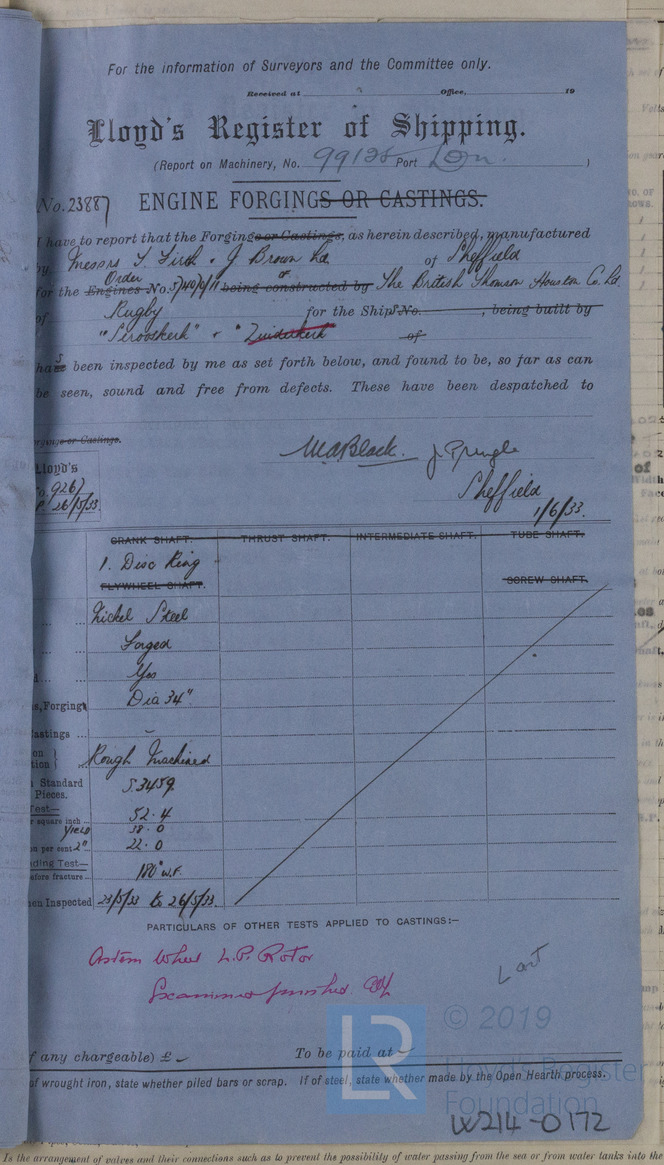 For the information of Surveyors and the Committee only.
Received at Office, 19
Lloyd's Register of Shipping.
(Report on Machinery, No. 99128 Port Lon. )
No. 23887 ENGINE FORGINGS OR CASTINGS.
I have to report that the Forgings or Castings, as herein described, manufactured
by Messrs T. Firth & J Brown Ld of Sheffield
Order of
for the Engines No. 5/40/0/11 being constructed by The British Thomson Houston Co. Ld.
of Rugby for the Ship's No. , being built by
"Sirooskerk" & "Zuiderkerk" of
has been inspected by me as set forth below, and found to be, so far as can
be seen, sound and free from defects. These have been despatched to
or Castings.
W A Black. J. Pringle
Lloyd's
No. 9267
26/5/33
Sheffield
1/6/33.
CRANK SHAFT. THRUST SHAFT. INTERMEDIATE SHAFT. TUBE SHAFT.
1. Disc Ring
FLYWHEEL SHAFT. SCREW SHAFT.
Nickel Steel
Forged
Yes
s, Forgings Dia 34"
Castings ... -
on
tion } Rough Machined
Standard
Pieces. S.3459
Test—
r square inch ... 52.4
YIELD 38.0
on per cent 2" 22.0
ding Test—
efore fracture ... 180° W.F.
en Inspected 23/5/33 to 26/5/33.
PARTICULARS OF OTHER TESTS APPLIED TO CASTINGS:—
Astern Wheel L.P. Rotor
Examined finished
© 2019
LR
Lloyd's Register
Foundation
f any chargeable) £ To be paid at
of wrought iron, state whether piled bars or scrap. If of steel, state whether made by the Open Hearth process.
W214-0172
Is the arrangement of valves and their connections such as to prevent the possibility of water passing from the sea or from water tanks into the